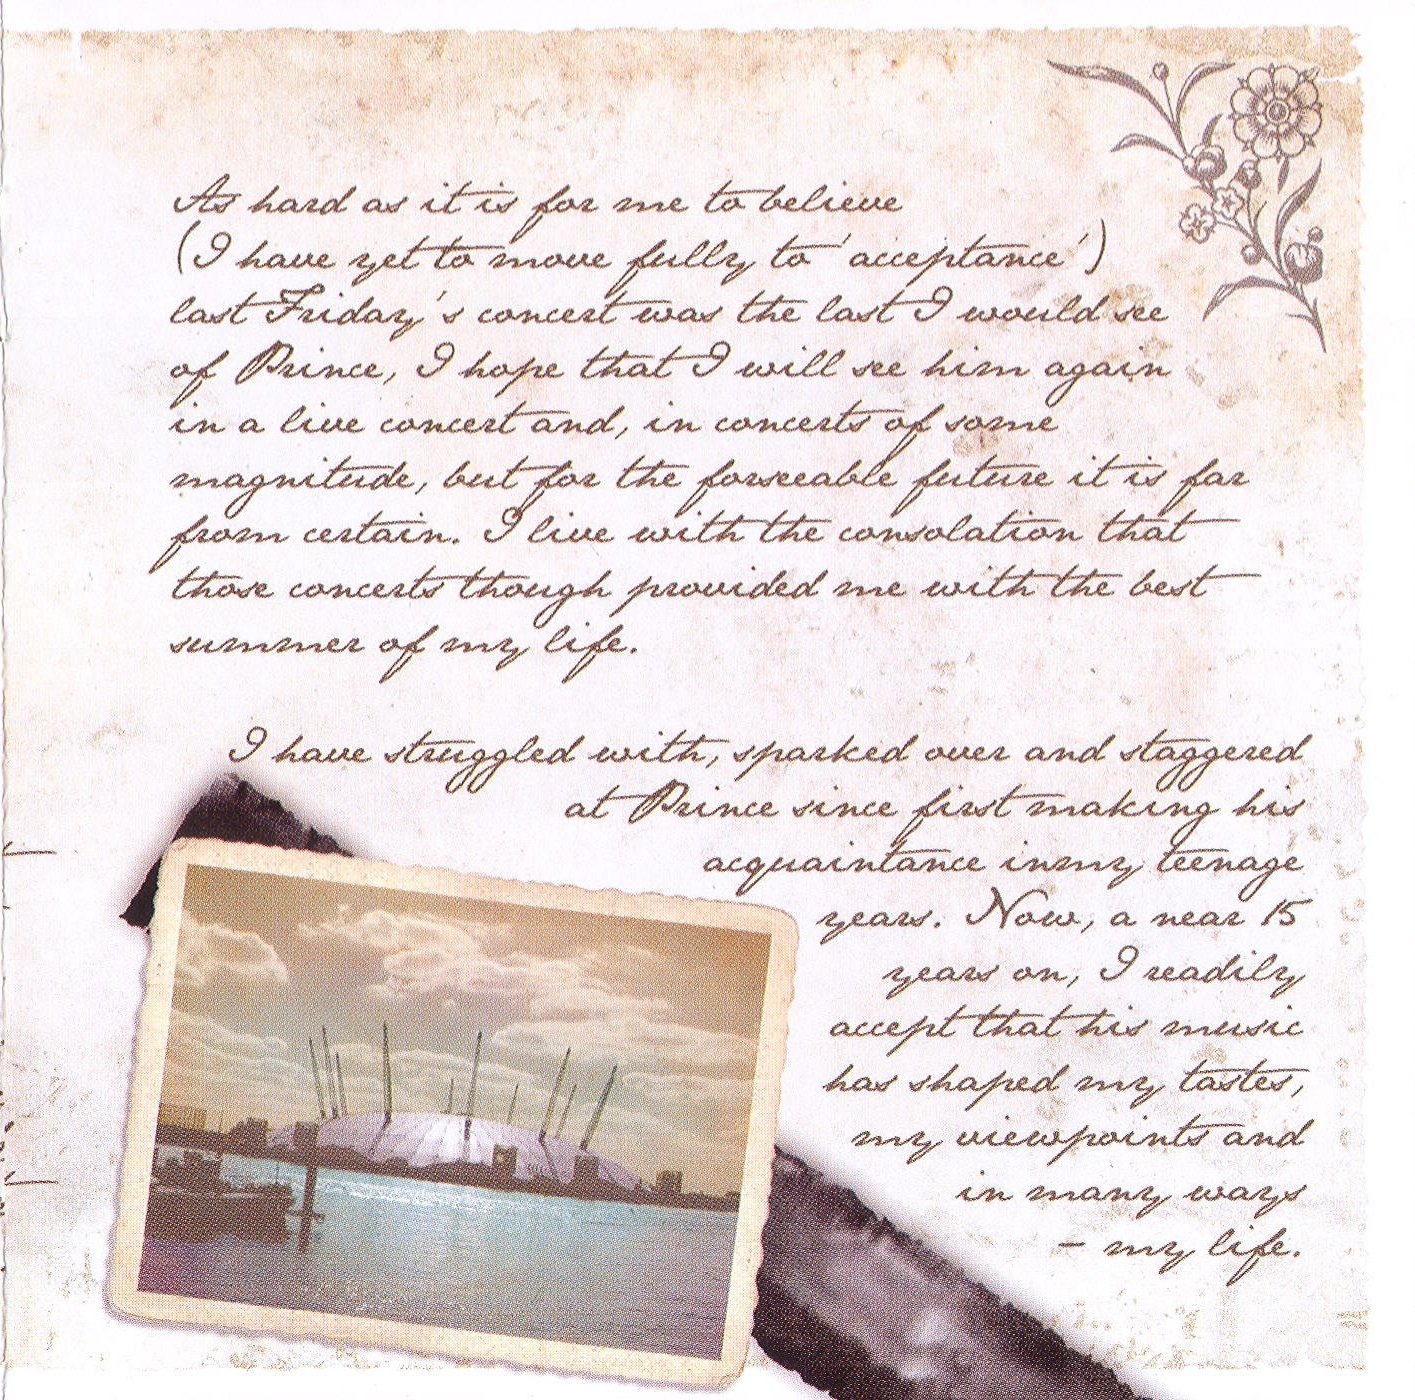 As hard as it is for me to believe
(I have yet to move fully to 'acceptance')
last Friday's concert was the last I would see
of Prince, I hope that I will see him again
in a live concert and, in concerts of some
magnitude, but for the forseeable future it is far
from certain. I live with the consolation that
those concerts though provided me with the best
summer of my life.
I have struggled with, sparked over and staggered
at Prince since first making his
acquaintance in my teenage
years. Now, a near 15
years on, I readily
accept that his music
has shaped my tastes,
my viewpoints and
in many ways
- my life.